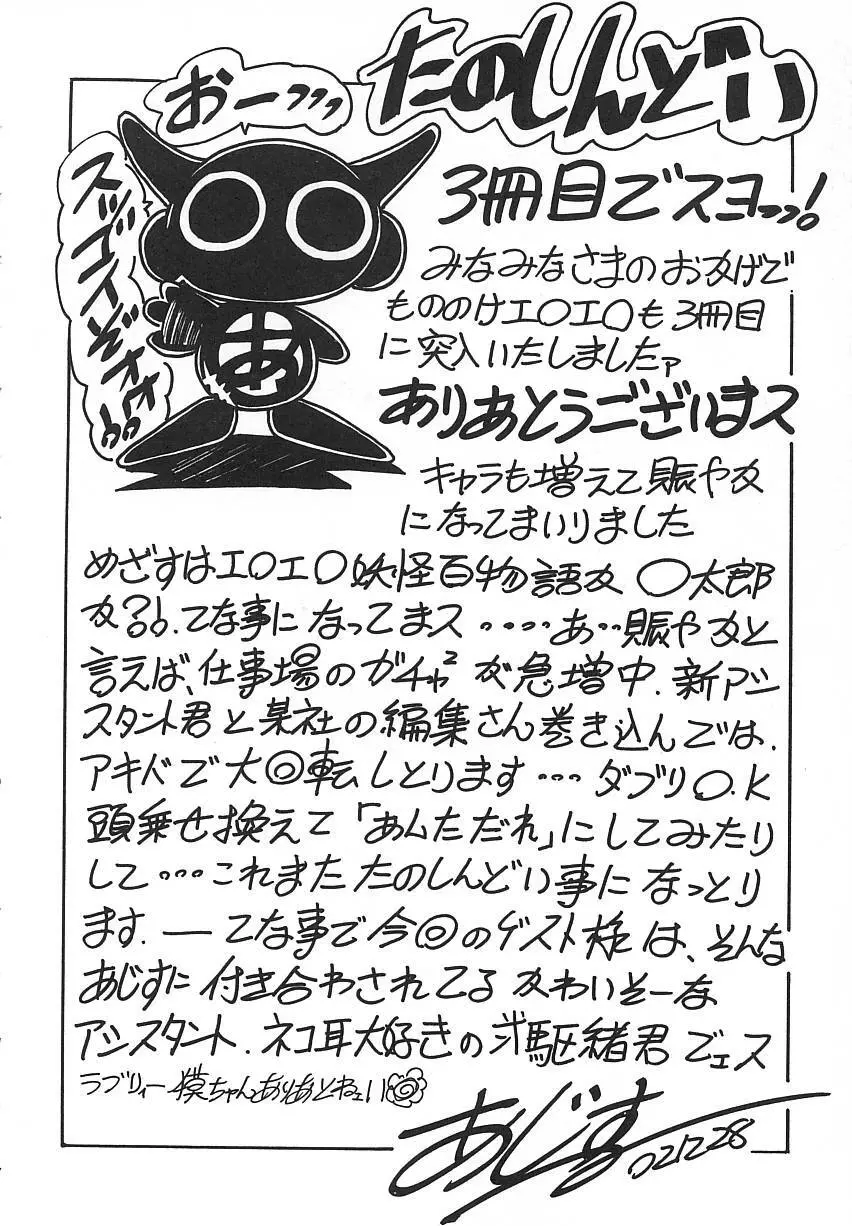 たのしんどい
おーっっっ
スッゴイぞオオ!!
3冊目でスヨっっ!
みなみなさまのおかげで
もののけエ〇エ〇も3冊目
に突入いたしましたァ
ありあとうございまス
キャラも増えて賑やか
になってまいりました
めざすはエ〇エ〇妖怪百物語か〇太郎
か?!.てな事になってまス・・・・あ・・賑やかと
言えば、仕事場のガチャ²が急増中.新アシ
スタント君と某社の編集さん巻き込んでは.
アキバで大◎転しとります・・・ダブリO.K
頭乗せ換えて「あんただれ」にしてみたり
して・・・これまたたのしんどい事になっとり
ます.―てな事で今◎のゲスト様は、そんな
あじすに付き合わされてるかわいそーな
アシスタント.ネコ耳大好きの 駆緒君でェス
ラブリィー獏ちゃんありあとねェい
あじす 02.12.28